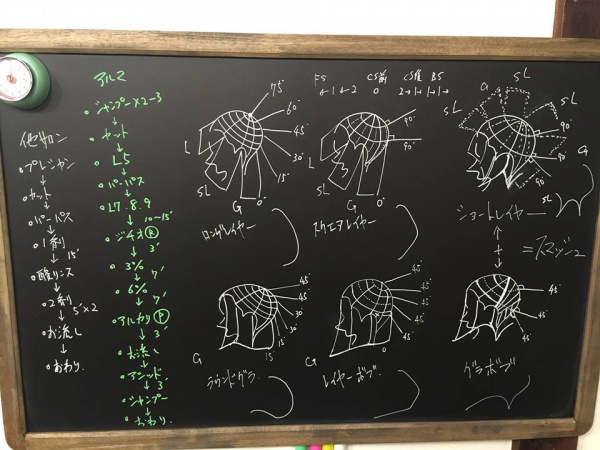 他サロン
○プレシャン
↓
○カット
↓
○パーパス
↓
○1剤
↓ 15'
○酸リンス
↓
○2剤
↓ 5'×2
○お流し
↓
○おわり.
アルマ
○シャンプー×2-3
↓
○カット
↓
○L5
↓
○パーパス
↓
○L7.8.9
↓ 10~15'
○ジチオ
↓ 3'
○3%
↓ 7'
○6%
↓ 7'
○アルカリ
↓ 3'
○お流し
↓
○アシッド
↓ 3'
○シャンプー
↓
○おわり.
75°
60°
45°
30°
15°
0°
L
SL
G
ロングレイヤー
FS CS前 CS後 BS
←1 ←2 0 2→ 1→ 1→ 1→
90°
90°
L
G
0°
スクエアレイヤー
SL
G
SL
SL
SL
G
90°
90°
90°
ショートレイヤー
SL
↑
+
↓
=スマッシュ
45°
45°
30°
30°
15°
15°
G
ラウンドグラ.
45°
45°
45°
45°
0
G
レイヤーボブ.
45°
45°
45°
45°
グラボブ